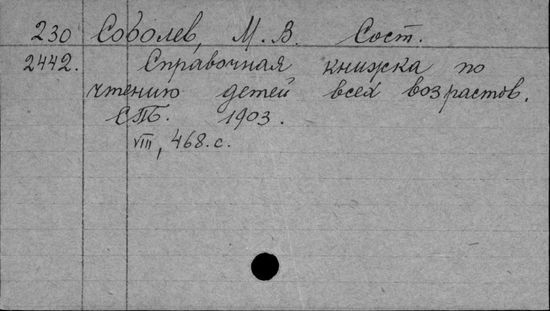 230 Соболев, М. В. Сост.
2442. Справочная книжка по
чтению детей всех возрастов.
СПБ. 1903.
VIII, 468.с.